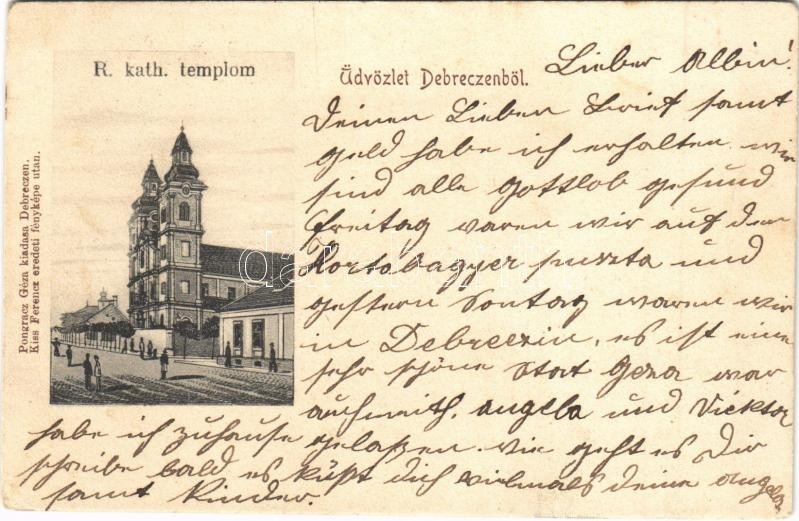 R. kath. templom
Üdvözlet Debreczenböl.
Pongracz Géza kiadasa Debreczen.
Kiss Ferencz eredeti fényképe utan.
Lieber Albin!
Deinen Lieben Brief samt
geld habe ich erhalten wir
sind alle Gottlob gesund
Freitag waren wir auf dem
Hortobagyer puszta und
gestern Sontag waren wir
in Debreczin, es ist eine
sehr schöne Stat Geza war
auch mith, Angela und Vicktor
habe ich zuhause gelassen wie geht es Dir
schreibe bald es küßt dich vielmals deine Angela
samt Kinder.